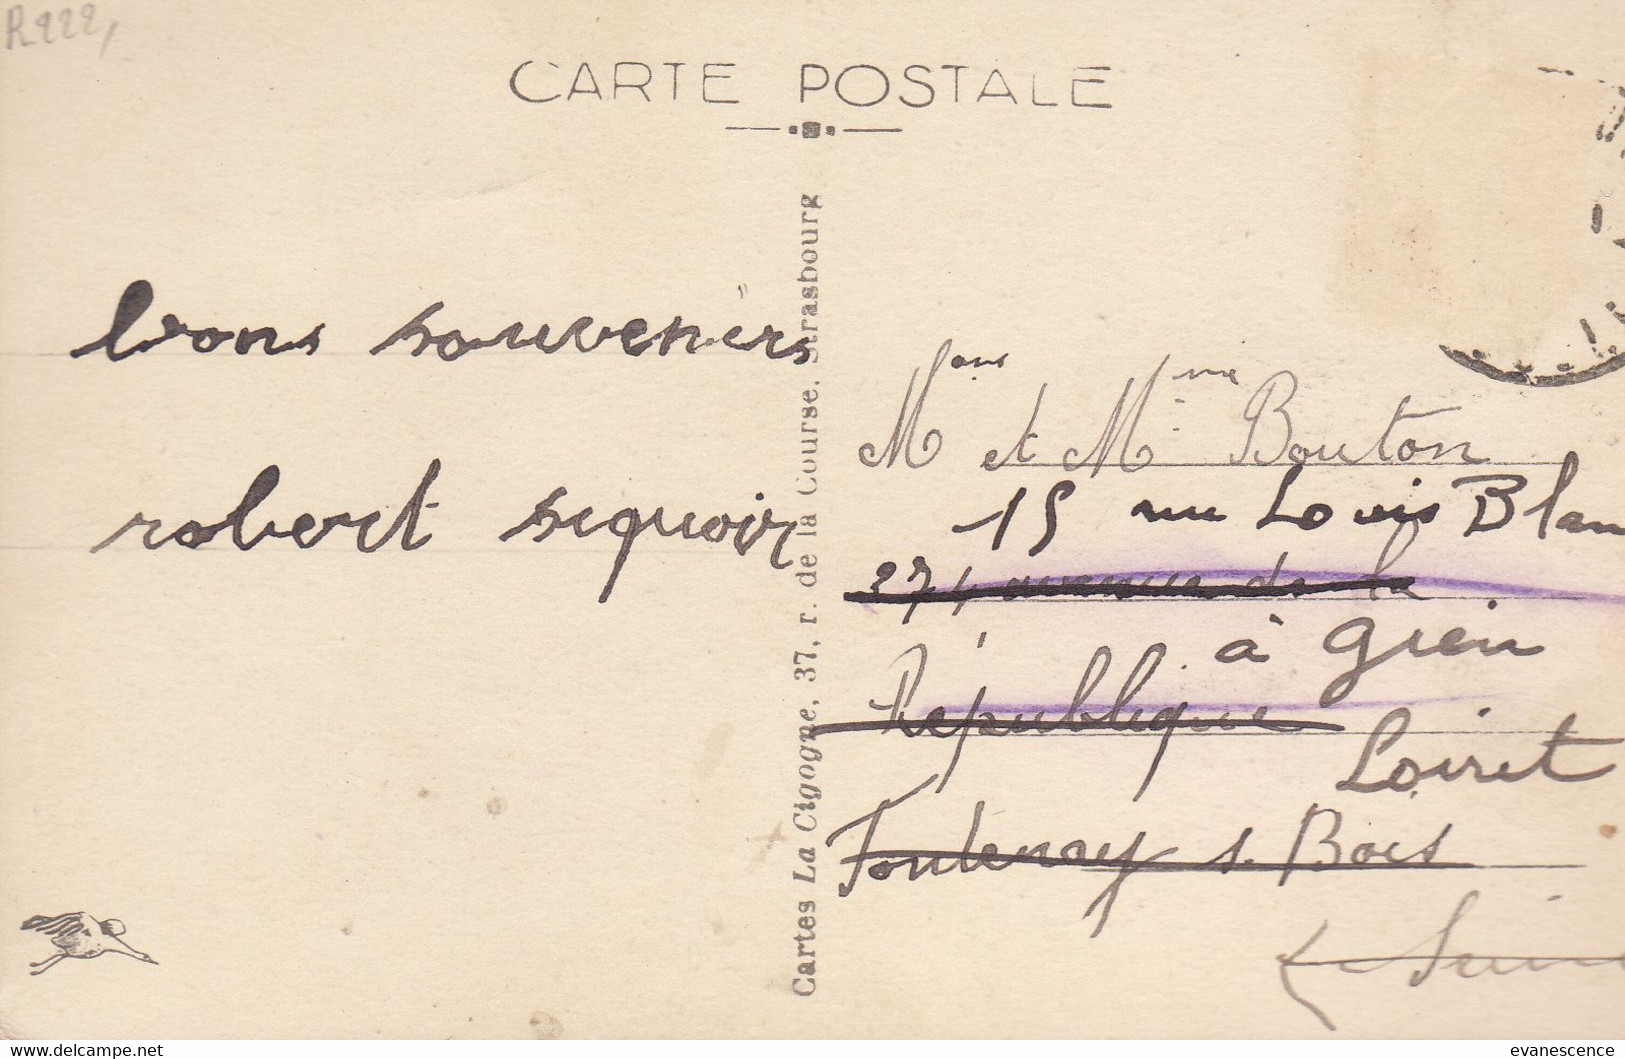 R222,
CARTE POSTALE
bons souvenirs
robert
Cartes La Cigogne, 37, r. de la Course, Strasbourg
M et Mme Bouton
15 rue Louis Blan
274 avenue de la
à Gien
République
Loiret
Fontenay s. Bois
(Seine
evanescence
www.delcampe.net